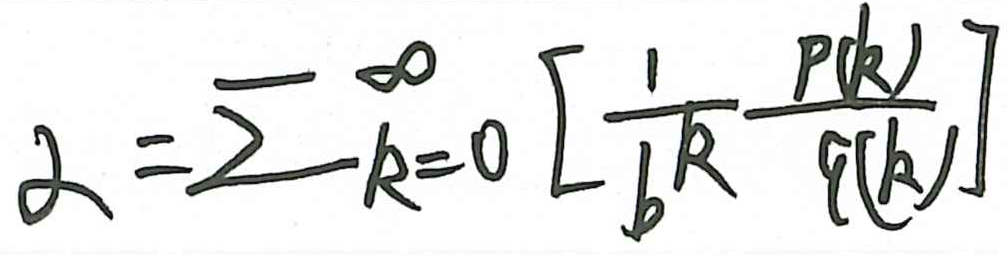 α = ∑_{k=0}^{∞} [ \frac{1}{b^k} \frac{p(k)}{q(k)} ]